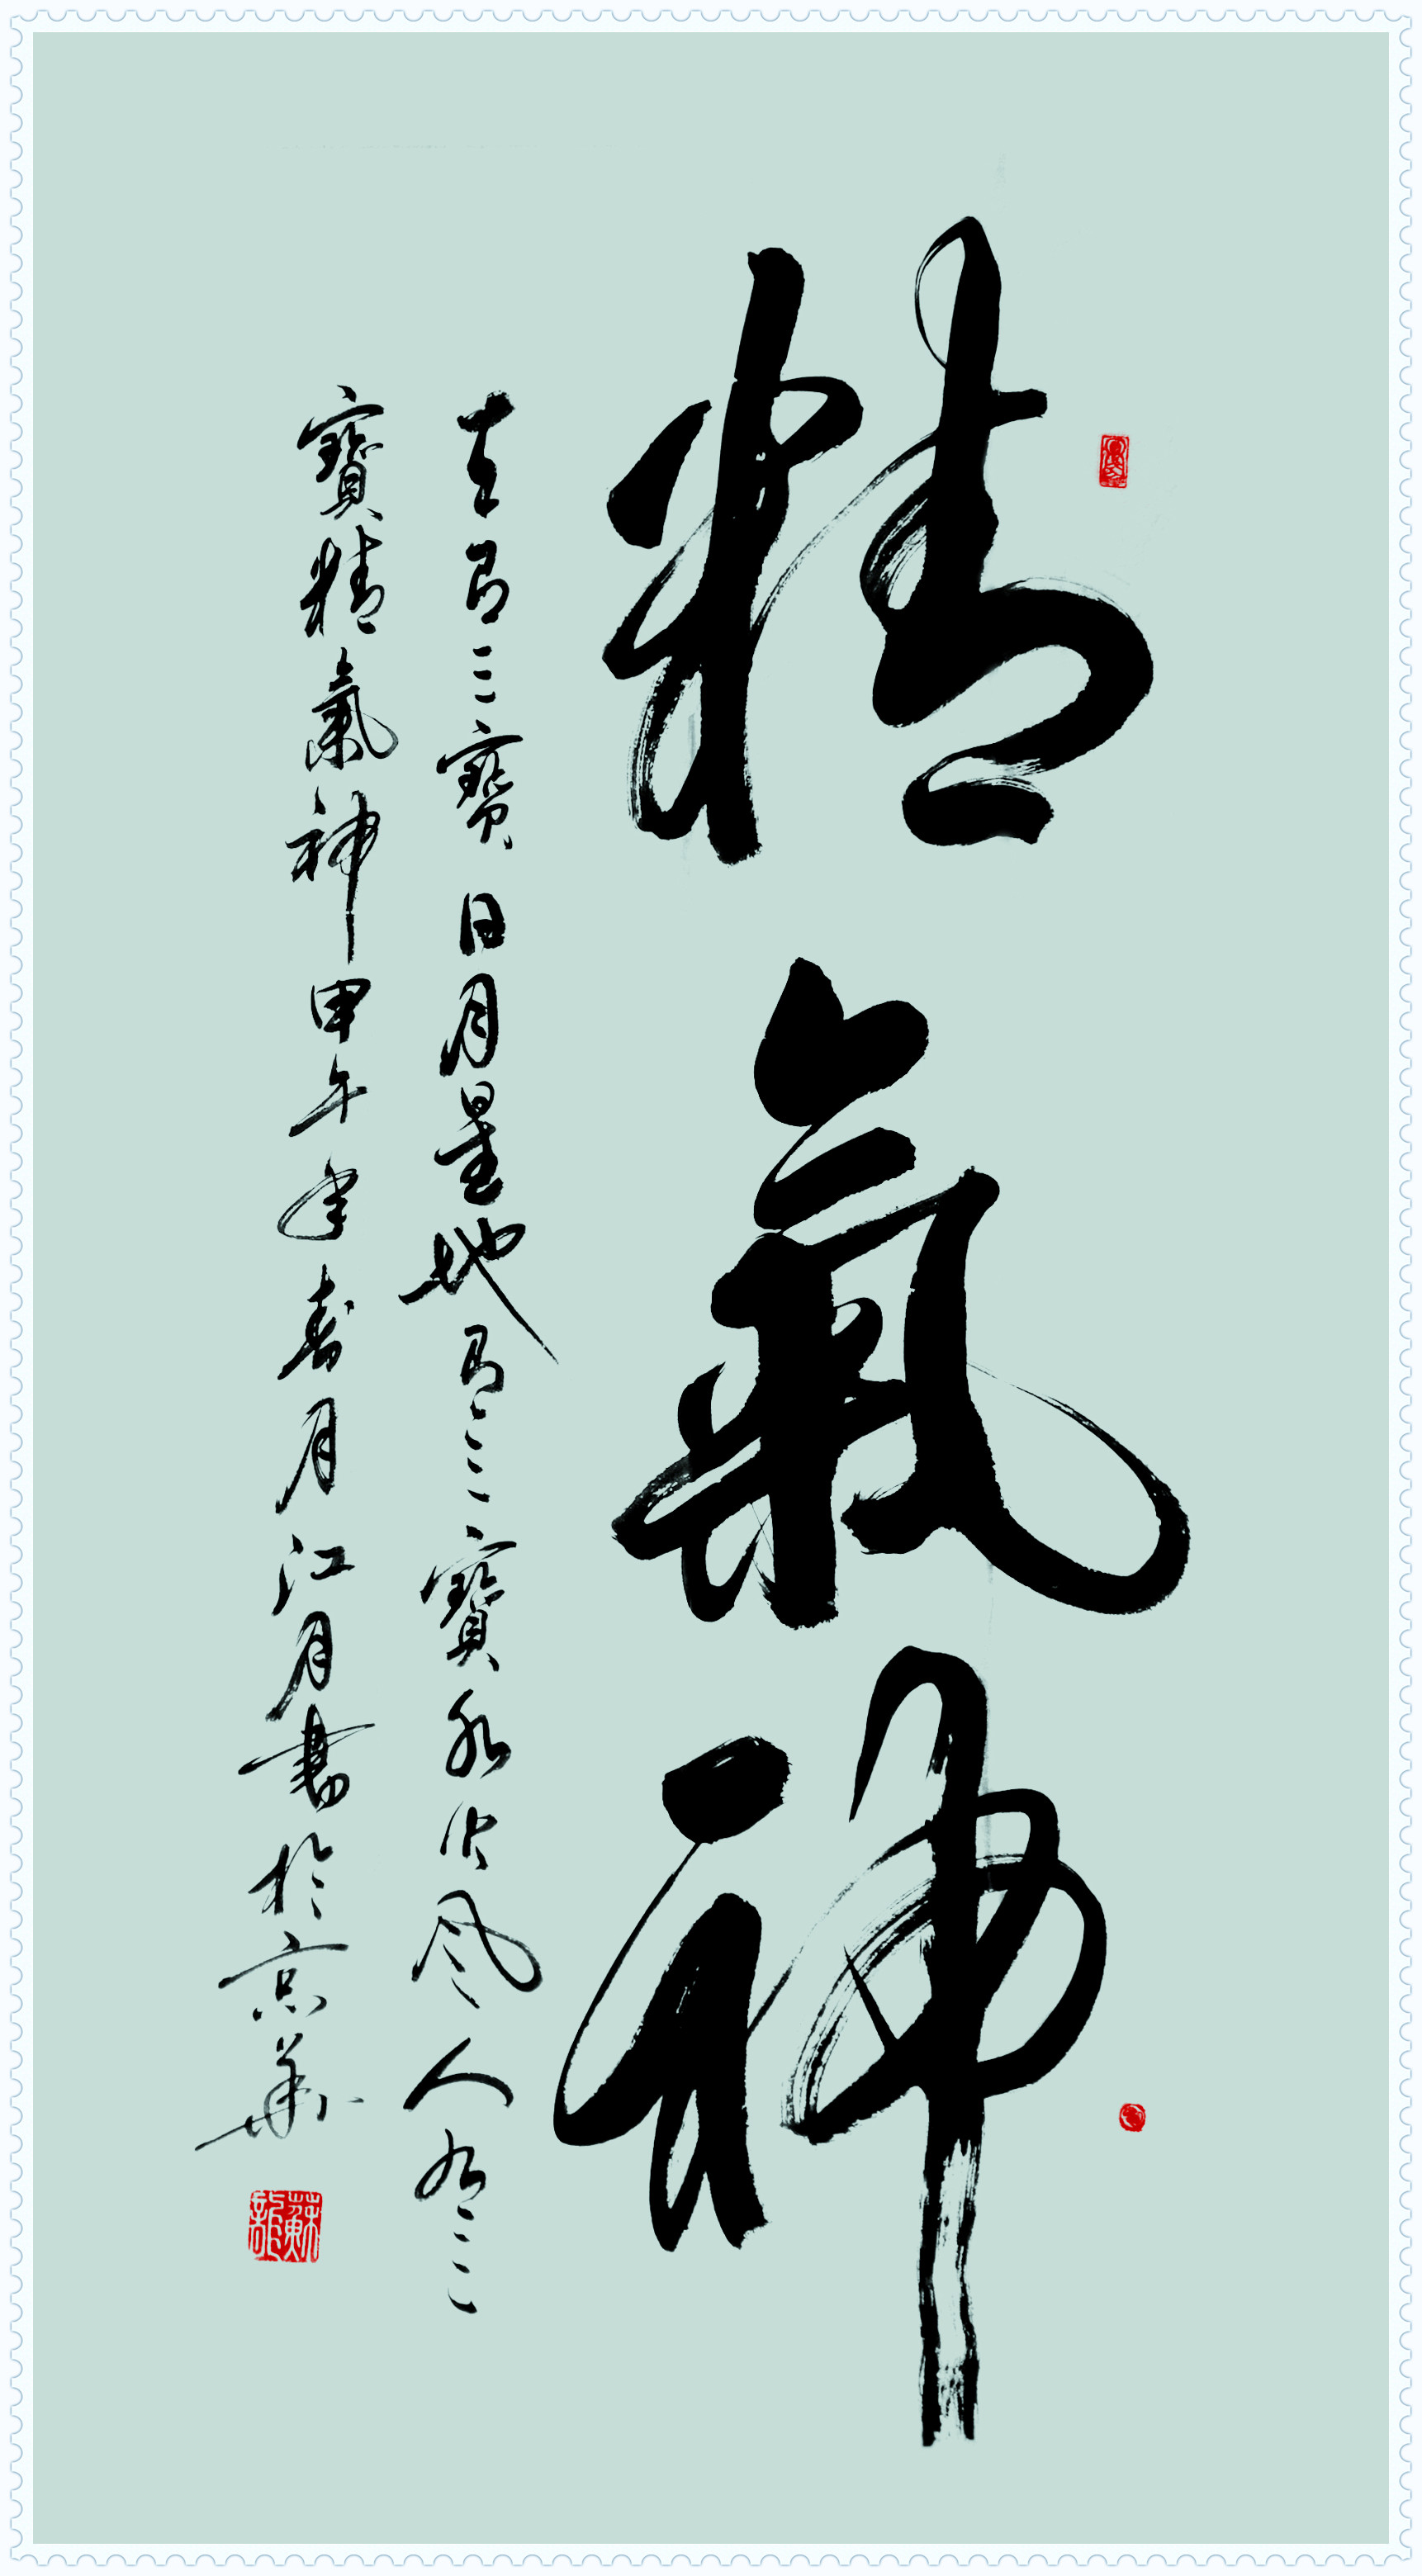 精氣神
天有三寶日月星地有三寶水火風人有三
寶精氣神甲午年春月江月書於京華
蘇